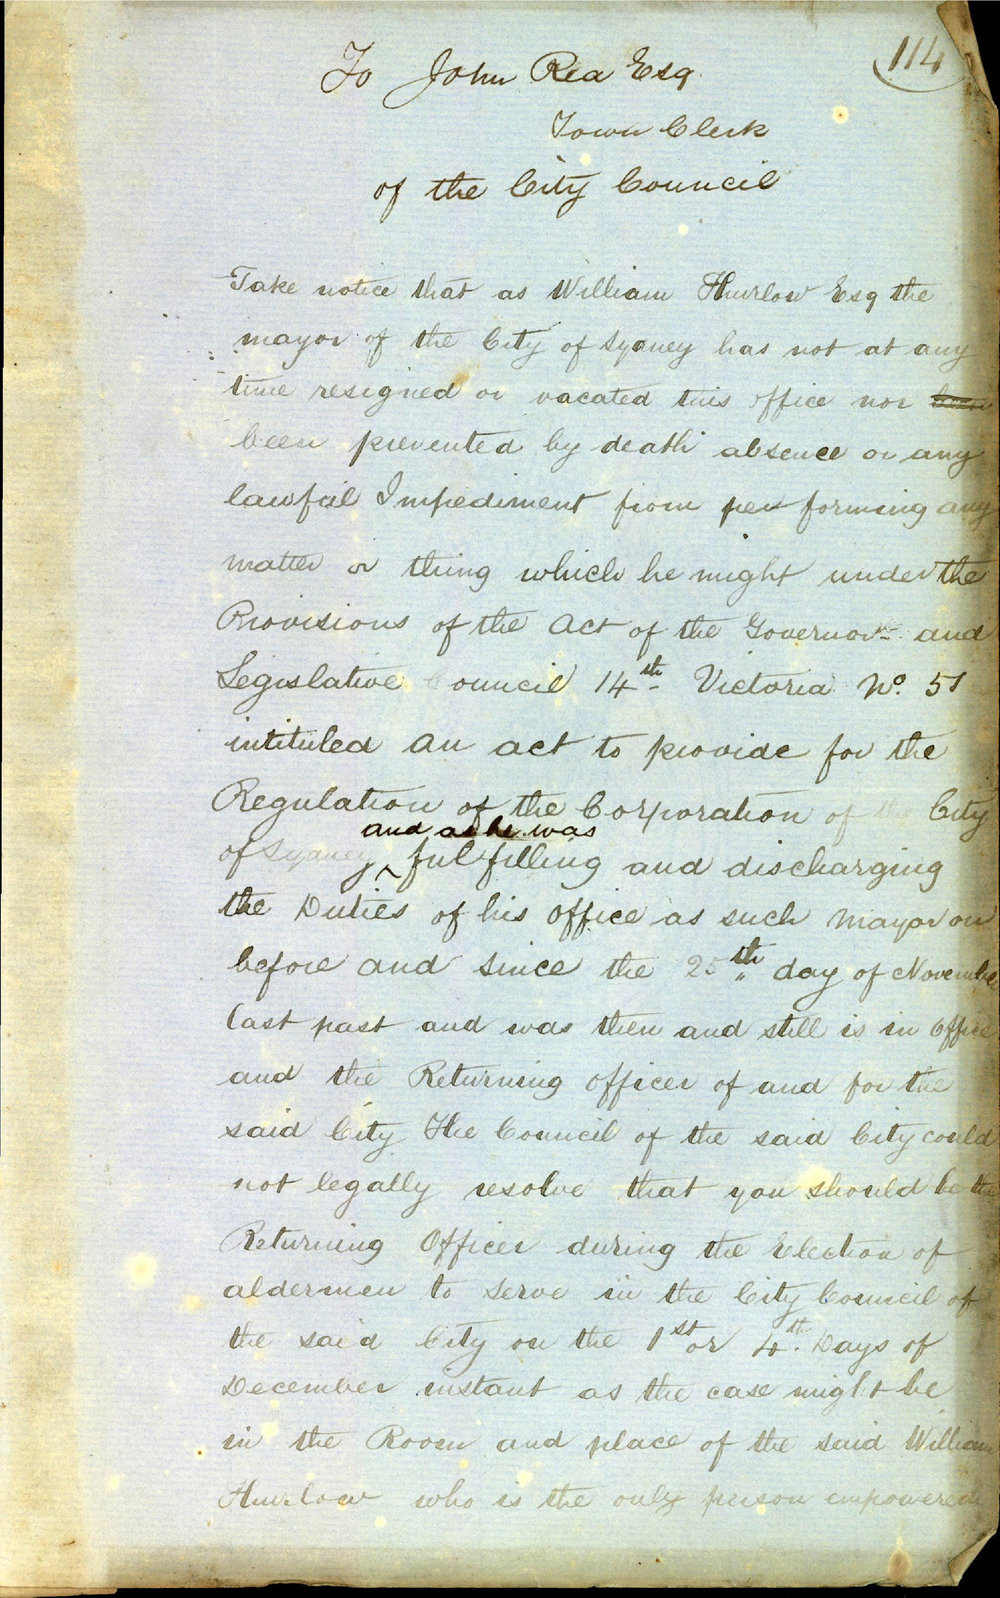 114
To John Rea Esq
Town Clerk
of the City Council
Take notice that as William Thurlow Esq the
mayor of the City of Sydney has not at any
time resigned or vacated this office nor
been prevented by death absence or any
lawful Impediment from per forming any
matter or thing which he might under the
Provisions of the Act of the Governor and
Legislative Council 14th Victoria No. 51
intituled an act to provide for the
Regulation of the Corporation of the City
and as he was
of Sydney ^ fulfilling and discharging
the Duties of his office as such Mayor on
before and since the 25th day of November
last past and was then and still is in office
and the Returning officer of and for the
said City The Council of the said City could
not legally resolve that you should be the
Returning Officer during the Election of
aldermen to serve in the City Council of
the said City on the 1st or 4th Days of
December instant as the case might be
in the Room and place of the said William
Thurlow who is the only person empowered